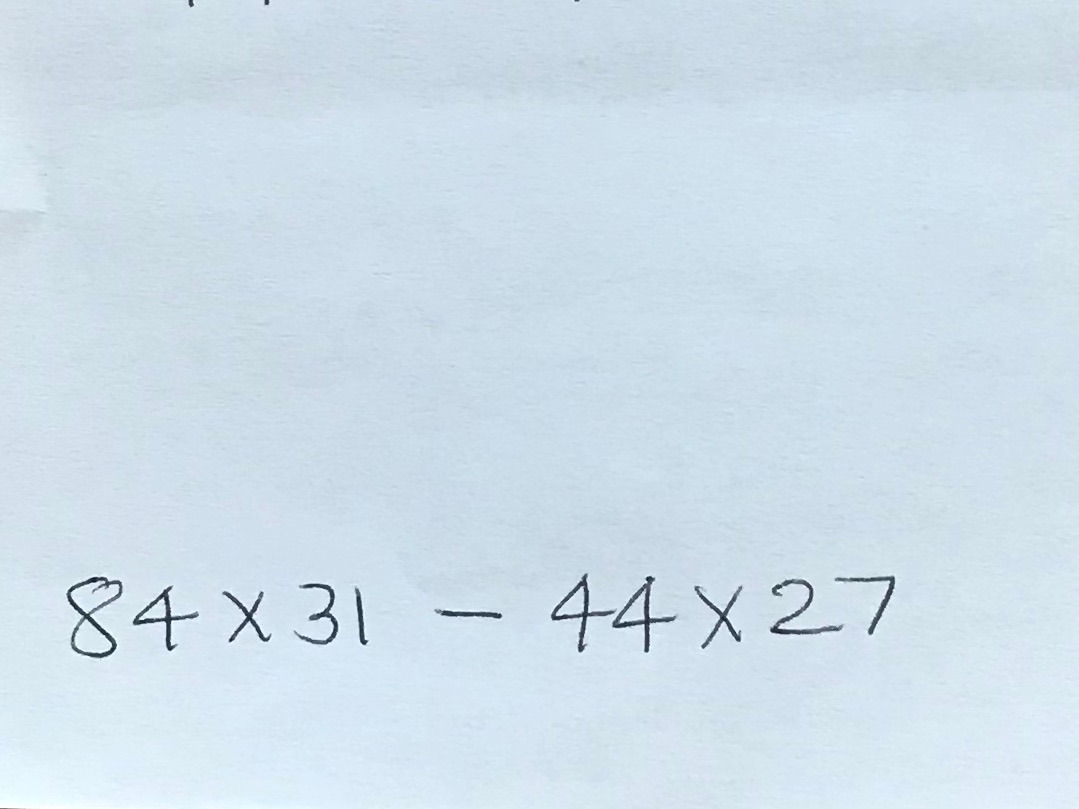 84 × 31 − 44 × 27